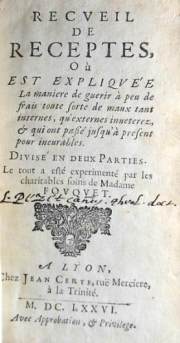 RECVEIL
DE
RECEPTES,
Où
EST EXPLIQVÉE
La maniere de guerir à peu de
frais toute sorte de maux tant
internes, qu'externes inueterez,
& qui ont passé jusqu'à present
pour incurables.
DIVISE EN DEUX PARTIES.
Le tout a esté experimenté par les
charitables soins de Madame
FOVQVET.
A LYON,
Chez JEAN CERTE, ruë Merciere,
à la Trinité.
M. DC. LXXVI.
Avec Approbation, & Privilege.